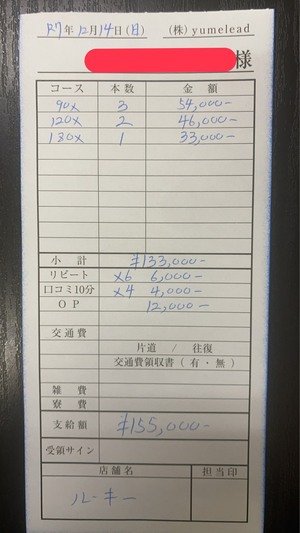 R7年12月14日(日) (株) yumelead
様
コース 本数 金額
90× 3 54,000-
120× 2 46,000-
180× 1 33,000-
小計 ¥133,000-
リピート ×6 6,000-
口コミ10分 ×4 4,000-
OP 12,000-
交通費
片道 / 往復
交通費領収書(有・無)
雑費
寮費
支給額 ¥155,000-
受領サイン
店舗名 担当印
ルーキー